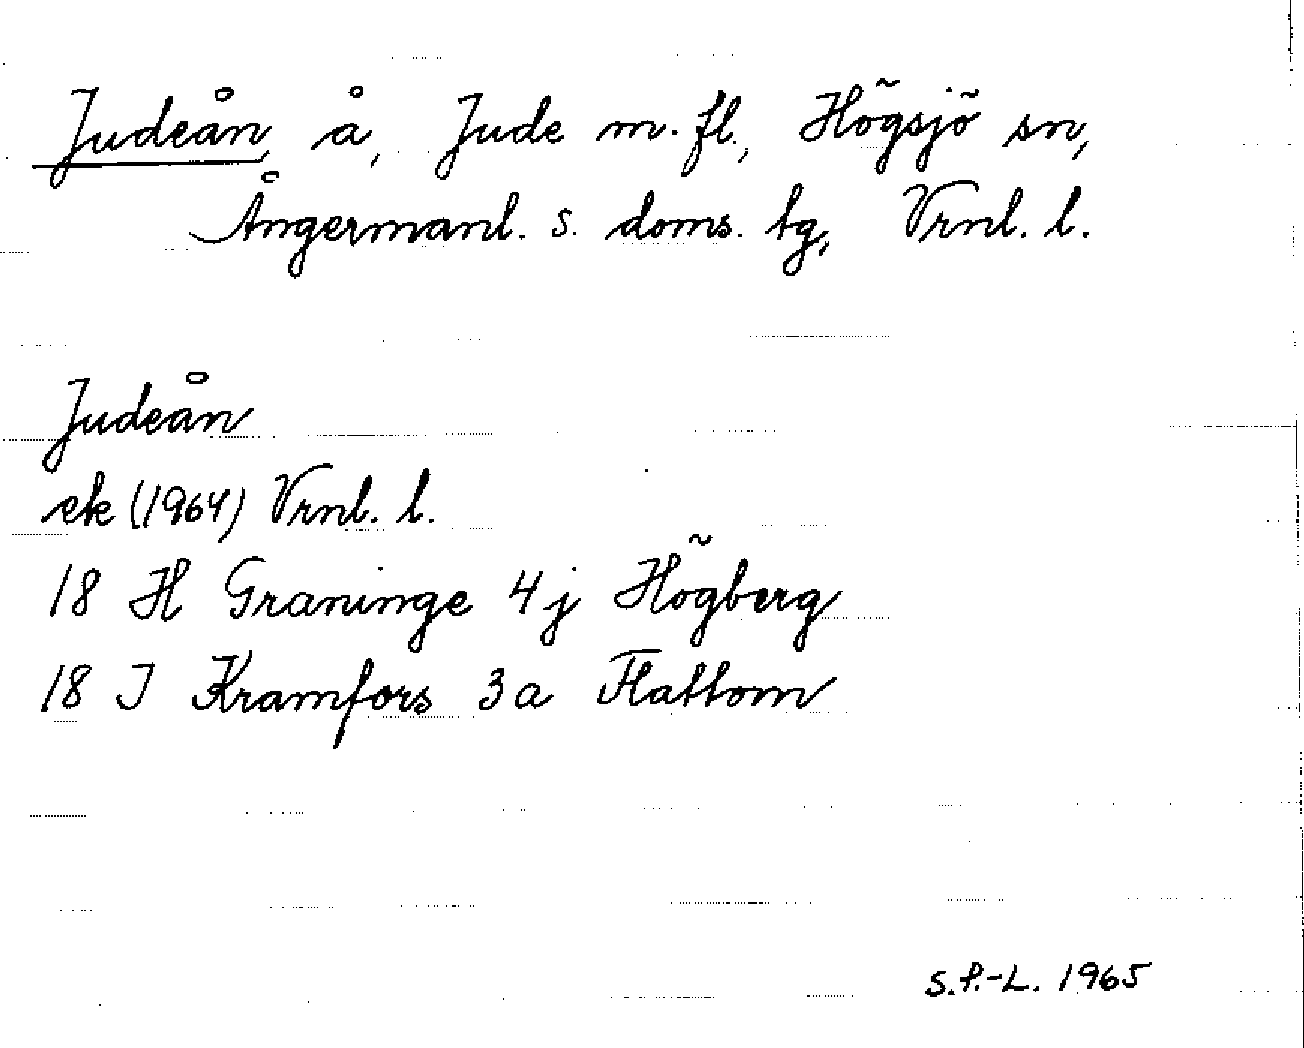 Judeån, å, Jude m. fl., Högsjö sn,
Ångermanl. s. doms. tg, Vrnl. l.
Judeån
ek (1964) Vrnl. l.
18 H Graninge 4j Högberg
18 I Kramfors 3a Flattom
S.P.-L. 1965